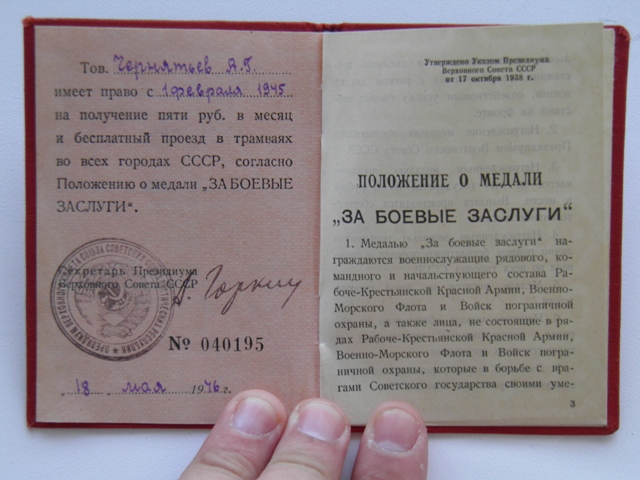 Тов. Чернятьев А.Г.
имеет право с 1 февраля 1945
на получение пяти руб. в месяц
и бесплатный проезд в трамваях
во всех городах СССР, согласно
Положению о медали „ЗА БОЕВЫЕ
ЗАСЛУГИ“.
Секретарь Президиума
Верховного Совета СССР
А. Горкин
№ 040195
„18 „ мая 1946 г.
Утверждено Указом Президиума
Верховного Совета СССР
от 17 октября 1938 г.
ПОЛОЖЕНИЕ О МЕДАЛИ
„ЗА БОЕВЫЕ ЗАСЛУГИ“
1. Медалью „За боевые заслуги“ на-
граждаются военнослужащие рядового, ко-
мандного и начальствующего состава Ра-
боче-Крестьянской Красной Армии, Военно-
Морского Флота и Войск пограничной
охраны, а также лица, не состоящие в ря-
дах Рабоче-Крестьянской Красной Армии,
Военно-Морского Флота и Войск погра-
ничной охраны, которые в борьбе с вра-
гами Советского государства своими уме-
3